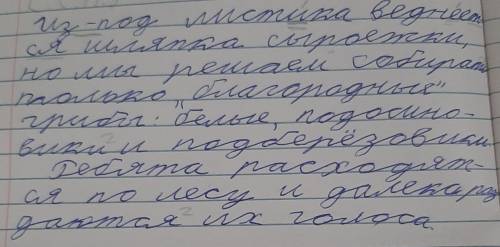 из-под листика веднеет
ся шляпка сыроежки,
но мы решаем собирать
только „благородные"
грибы: белые, подосино-
вики и подберёзовики.
Ребята расходят-
ся по лесу и далека раз
даются их голоса.